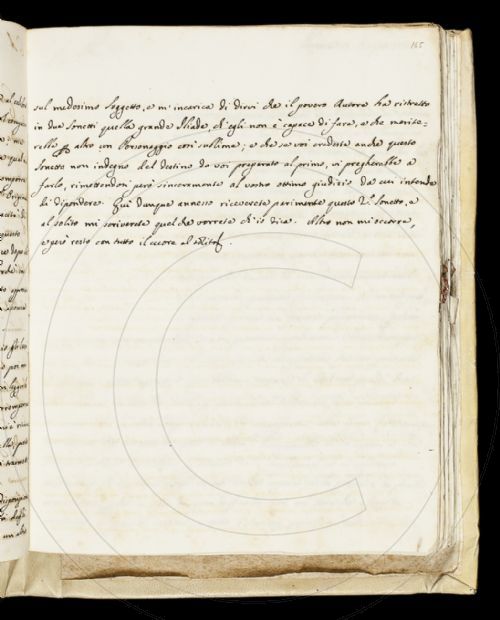 165
sul medesimo Soggetto, e m'incarica di dirvi che il povero Autore ha ristretto
in due Sonetti quella grande Iliade, ch'egli non è capace di fare, e che merite=
rebbe altro un Personaggio così sublime; e che se voi credete anche questo
Sonetto non indegno del destino da voi preparato al primo, vi pregherebbe a
farlo, rimettendosi però sinceramente al vostro ottimo giudizio da cui intende
di dipendere. Qui dunque annesso riceverete parimente questo 2.º Sonetto, e
al solito mi scriverete quel che vorrete ch'io dica. Altro non mi occorre,
e però resto con tutto il cuore al solito